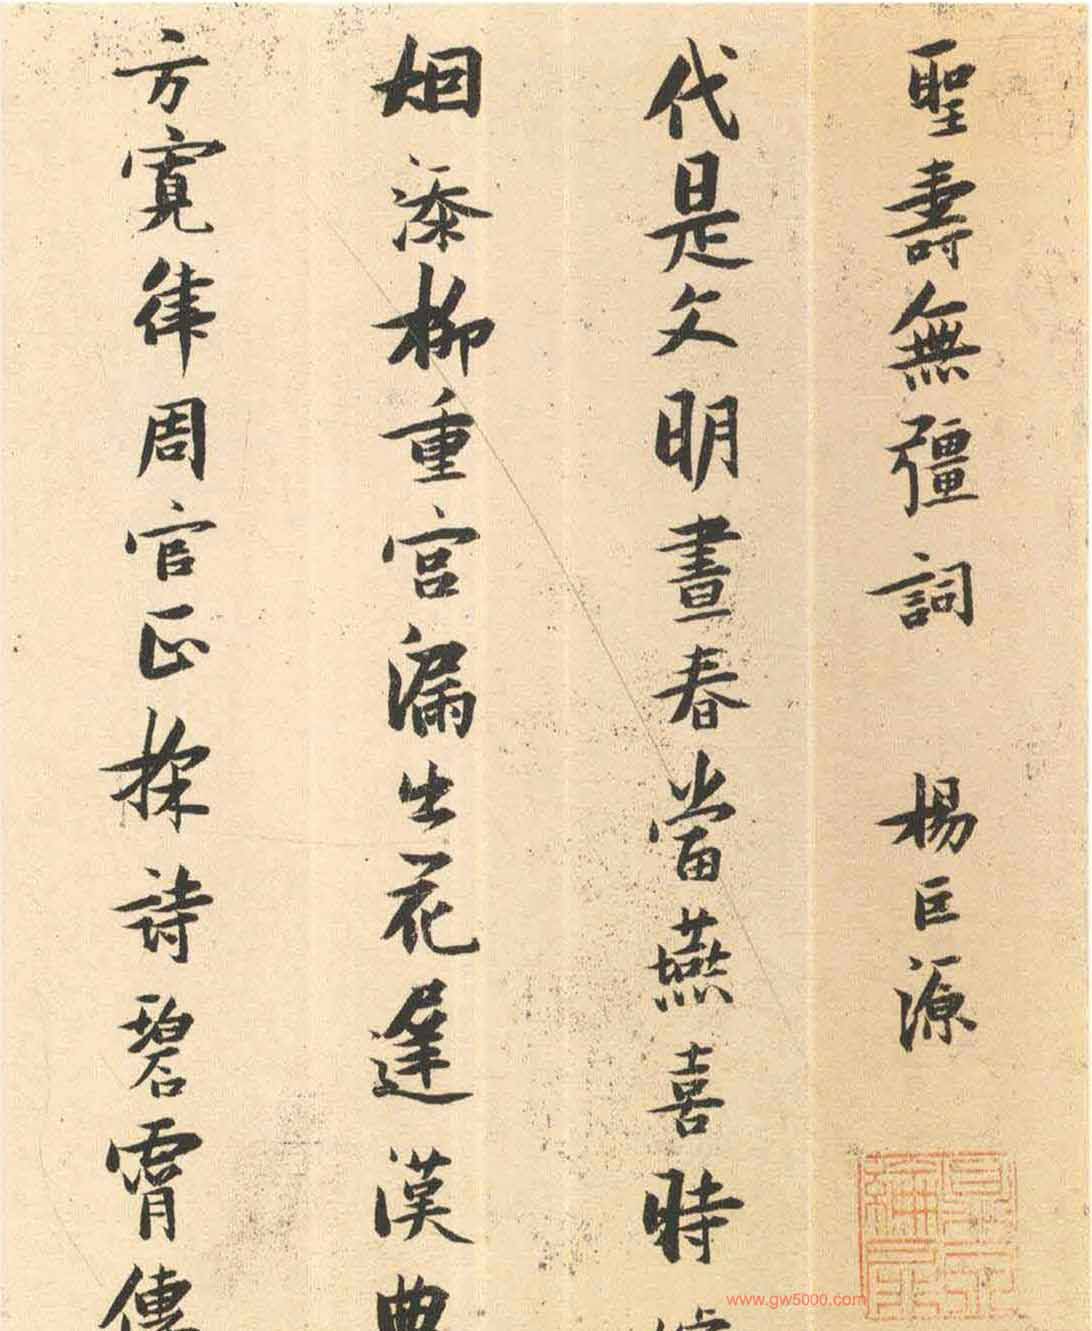 聖壽無彊詞 楊巨源
代是文明晝春當燕喜時
烟添柳重宮漏出花遲漢典
方寬律周官正採詩碧霄傳
www.gw5000.com